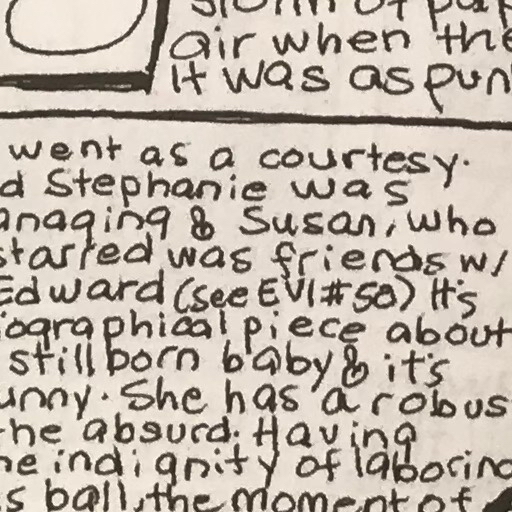 air when the
It was as pun
went as a courtesy.
d Stephanie was
anaging & Susan, who
starred was friends w/
Edward (see EVI #58) It's
iographical piece about
still born baby & it's
unny. She has a robus
he absurd. Having
he indignity of laboring
s ball, the moment of